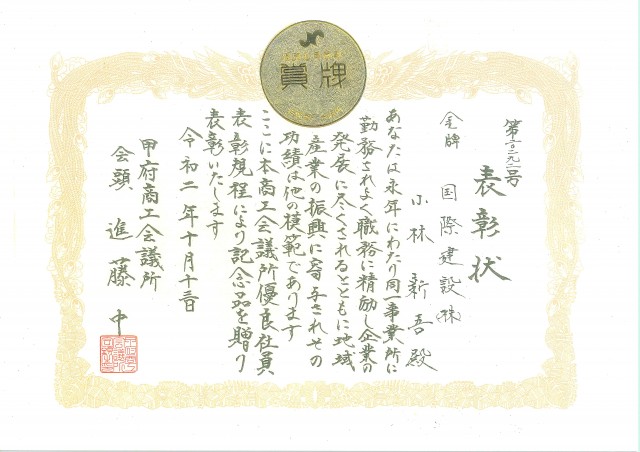 賞牌
表彰状
金牌 国際建設(株)
小林新吾殿
あなたは永年にわたり同一事業所に
勤務されよく職務に精励し企業の
発展に尽くされるとともに地域
産業の振興に寄与されその
功績は他の模範であります
ここに本商工会議所優良社員
表彰規程により記念品を贈り
表彰いたします
令和二年十月十三日
甲府商工会議所
会頭 進藤中